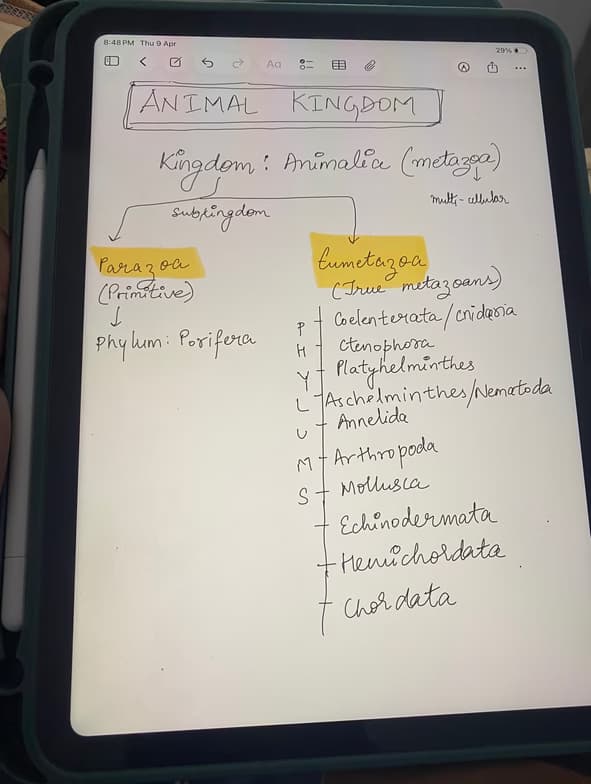 8:48 PM Thu 9 Apr
29%
Aa
ANIMAL KINGDOM
Kingdom : Animalia (metazoa)
multi-cellular
subkingdom
Parazoa
(Primitive)
Phylum: Porifera
Eumetazoa
(True metazoans)
PHYLUMS
Coelenterata/cnidaria
Ctenophora
Platyhelminthes
Aschelminthes/Nematoda
Annelida
Arthropoda
Mollusca
Echinodermata
Hemichordata
Chordata